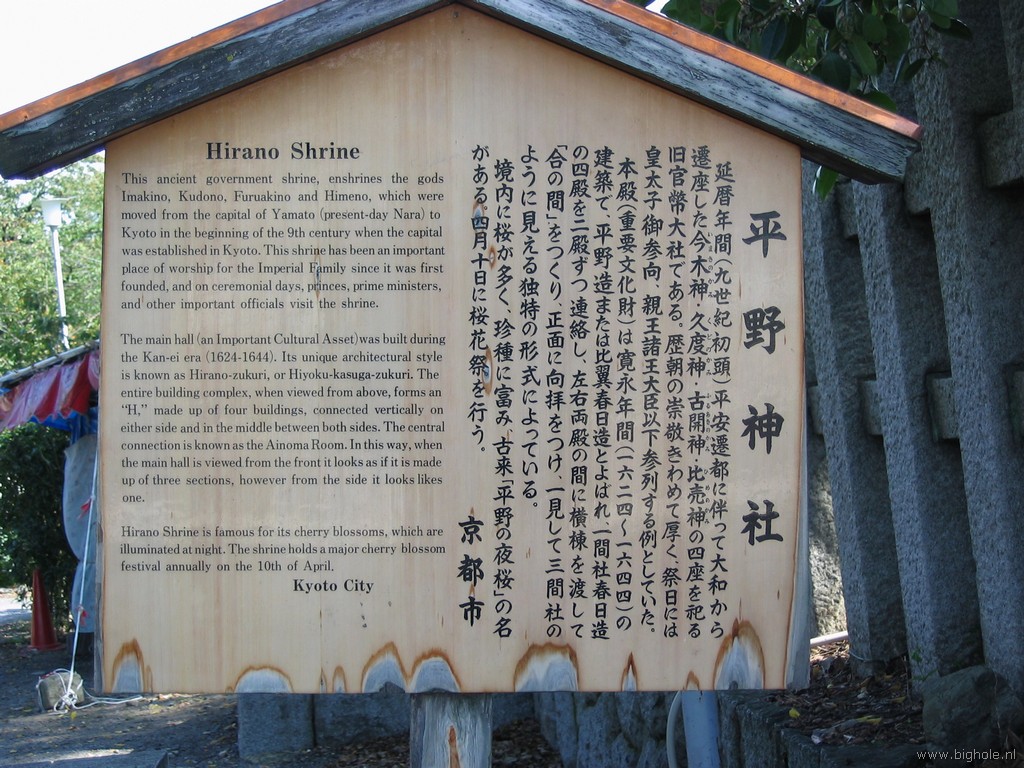 Hirano Shrine
This ancient government shrine, enshrines the gods
Imakino, Kudono, Furuakino and Himeno, which were
moved from the capital of Yamato (present-day Nara) to
Kyoto in the beginning of the 9th century when the capital
was established in Kyoto. This shrine has been an important
place of worship for the Imperial Family since it was first
founded, and on ceremonial days, princes, prime ministers,
and other important officials visit the shrine.
The main hall (an Important Cultural Asset) was built during
the Kan-ei era (1624-1644). Its unique architectural style
is known as Hirano-zukuri, or Hiyoku-kasuga-zukuri. The
entire building complex, when viewed from above, forms an
“H,” made up of four buildings, connected vertically on
either side and in the middle between both sides. The central
connection is known as the Ainoma Room. In this way, when
the main hall is viewed from the front it looks as if it is made
up of three sections, however from the side it looks likes
one.
Hirano Shrine is famous for its cherry blossoms, which are
illuminated at night. The shrine holds a major cherry blossom
festival annually on the 10th of April.
Kyoto City
平野神社
延暦年間(九世紀初頭)平安遷都に伴って大和から
遷座した今木神・久度神・古開神・比売神の四座を祀る
旧官幣大社である。歴朝の崇敬きわめて厚く、祭日には
皇太子御参向、親王諸王大臣以下参列する例としていた。
本殿(重要文化財)は寛永年間(一六二四〜一六四四)の
建築で、平野造または比翼春日造とよばれ、一間社春日造
の四殿を二殿ずつ連絡し、左右両殿の間に横棟を渡して
「合の間」をつくり、正面に向拝をつけ、一見して三間社の
ように見える独特の形式によっている。
境内に桜が多く、珍種に富み、古来「平野の夜桜」の名
がある。四月十日に桜花祭を行う。
京都市
www.bighole.nl